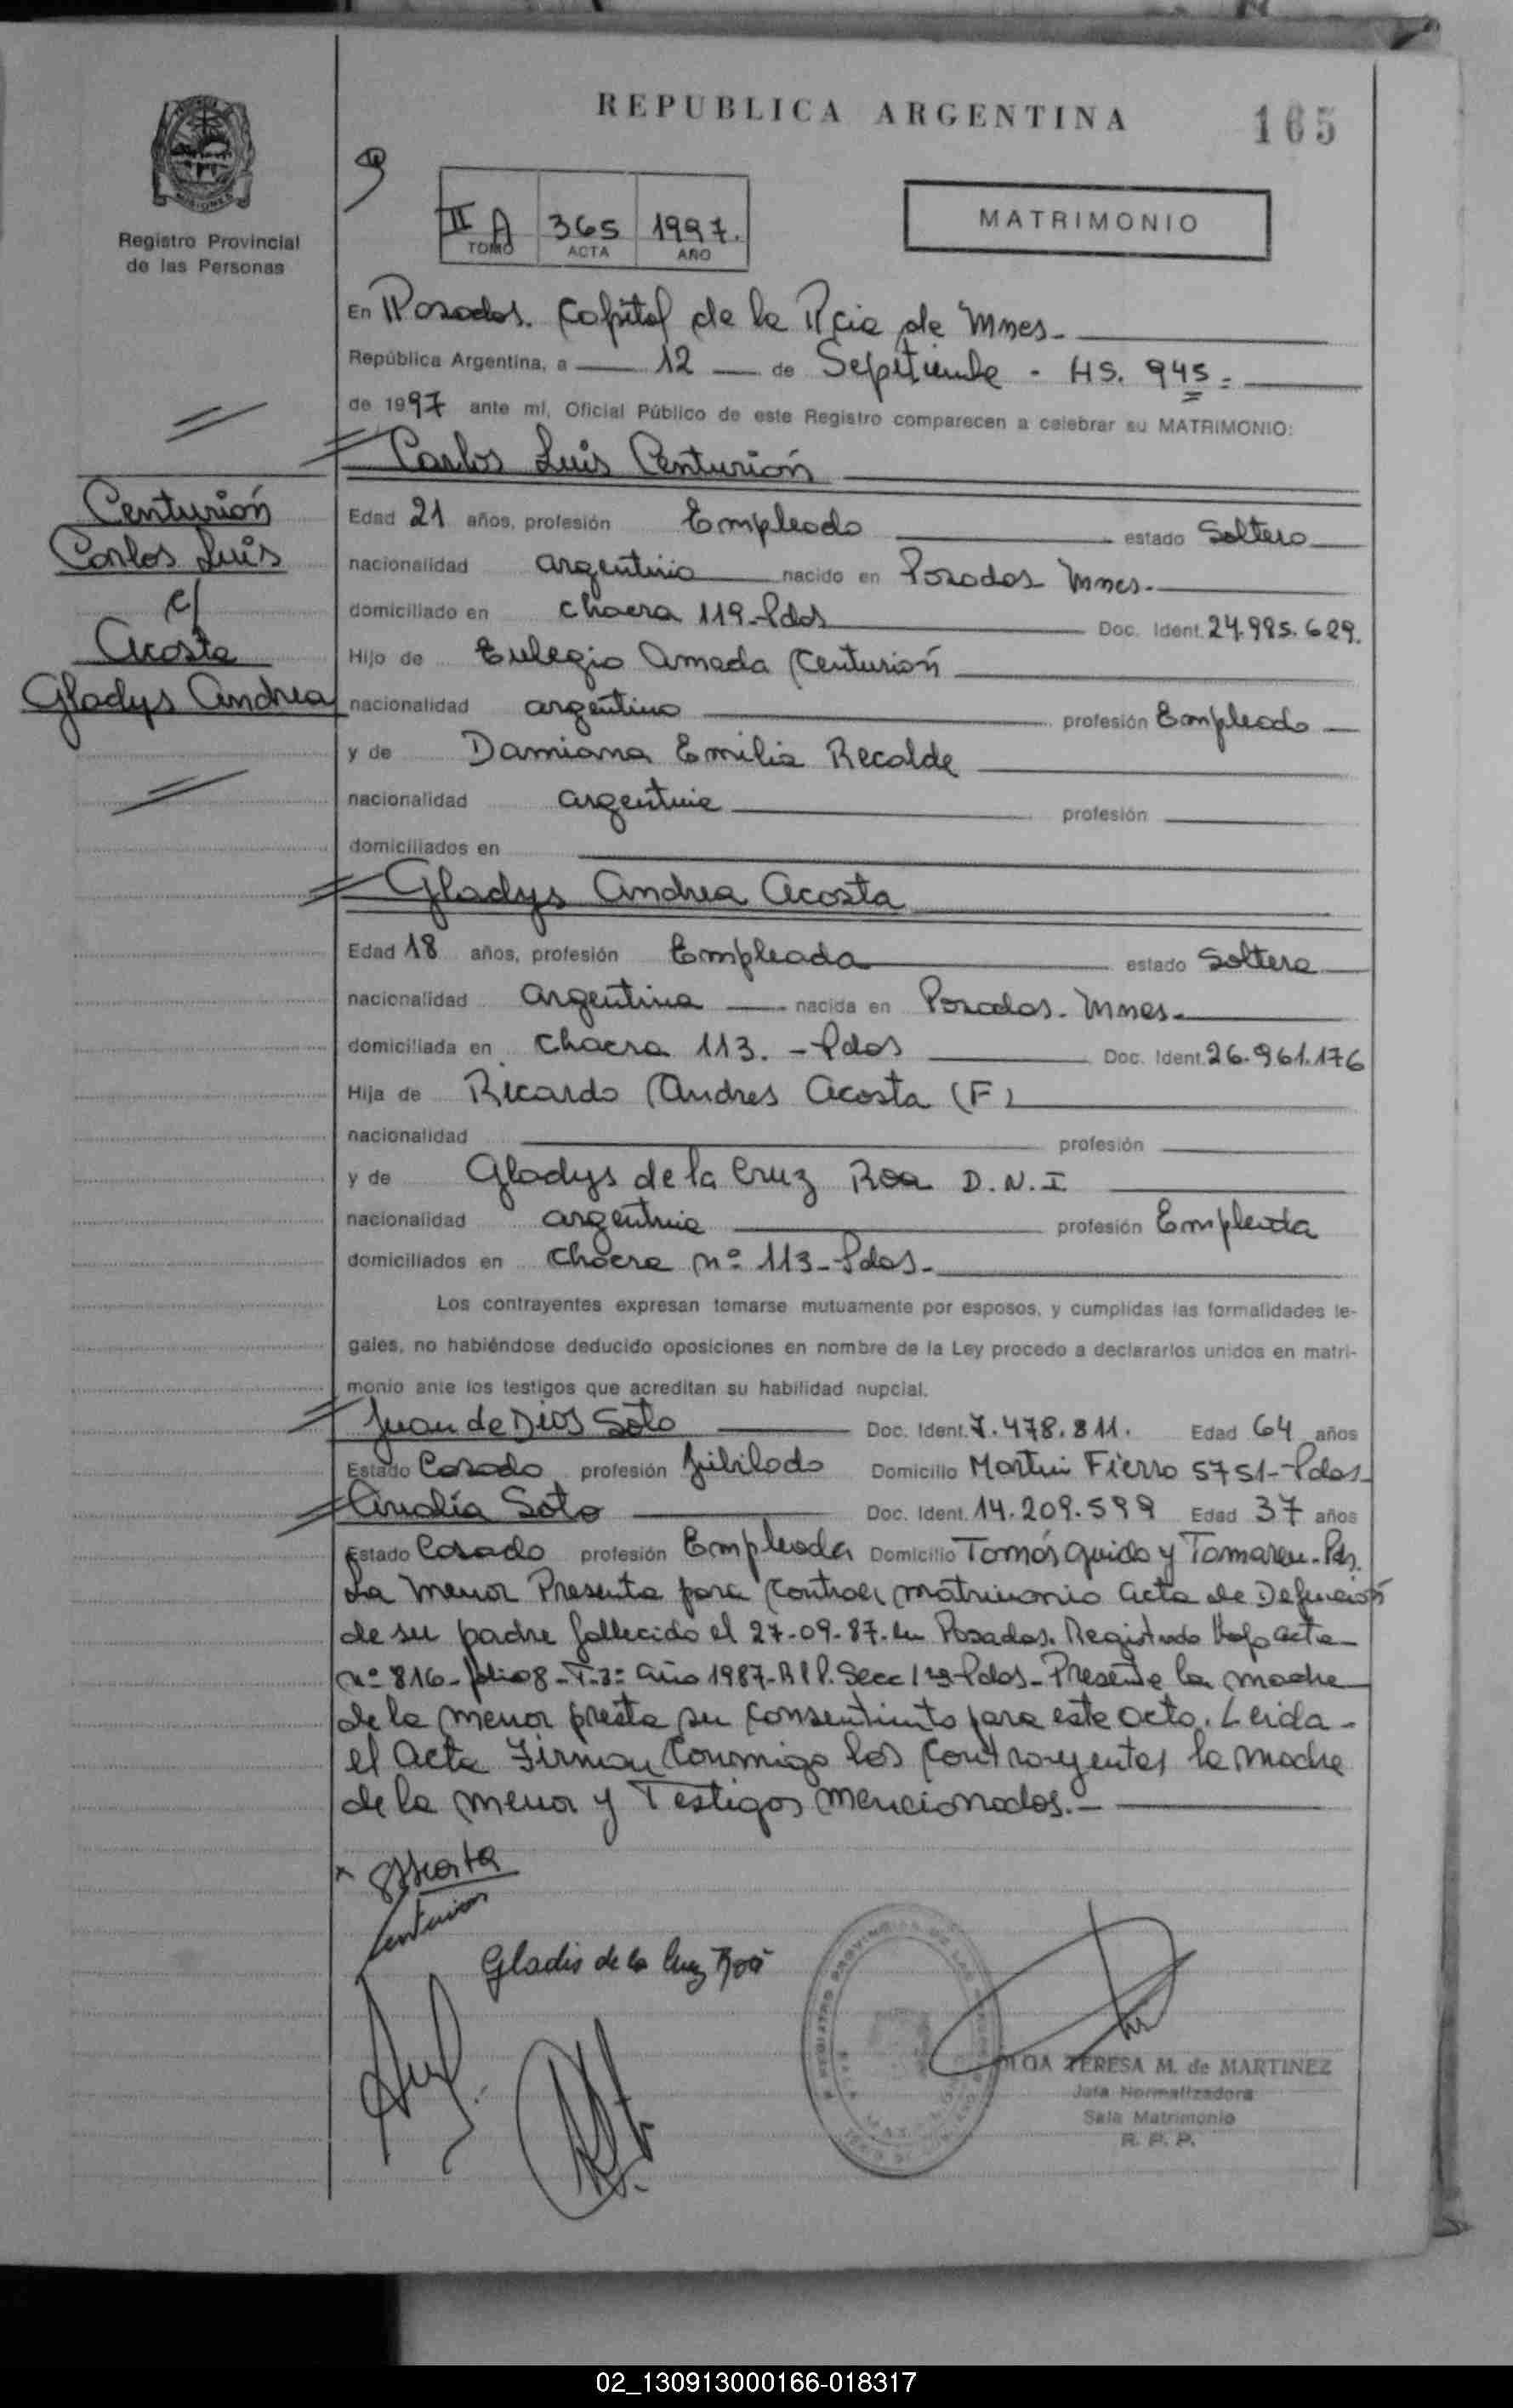 REPUBLICA ARGENTINA
165
MISIONES
Registro Provincial
de las Personas
II A 365 1997.
TOMO ACTA AÑO
MATRIMONIO
En Posadas. Capital de la Pcia de Mnes-
República Argentina, a 12 de Sepetiembe - HS. 945=
de 1997 ante mí, Oficial Público de este Registro comparecen a celebrar su MATRIMONIO:
Carlos Luis Centurión
Centurión
Carlos Luis
c/
Acosta
Gladys Andrea
Edad 21 años, profesión Empleado estado Soltero
nacionalidad argentino nacido en Posadas Mnes.
domiciliado en chacra 119-Pdas Doc. Ident. 24.985.629.
Hijo de Eulegio Amada Centurión
nacionalidad argentino profesión Empleado
y de Damiana Emilia Recalde
nacionalidad argentina profesión
domiciliados en
Gladys Andrea Acosta
Edad 18 años, profesión Empleada estado Soltera
nacionalidad argentina nacida en Posadas. Mnes.
domiciliada en chacra 113. - Pdas Doc. Ident. 26.961.176
Hija de Ricardo Andres Acosta (F)
nacionalidad profesión
y de Gladys de la Cruz Roa D.N.I
nacionalidad argentina profesión Empleada
domiciliados en chacra nº 113-Pdas-
Los contrayentes expresan tomarse mutuamente por esposos, y cumplidas las formalidades le-
gales, no habiéndose deducido oposiciones en nombre de la Ley procedo a declararlos unidos en matri-
monio ante los testigos que acreditan su habilidad nupcial.
Juan de Dios Soto Doc. Ident. 7.478.811. Edad 64 años
Estado Casado profesión Jubilado Domicilio Martin Fierro 5751-Pdas-
Analía Soto Doc. Ident. 14.209.599 Edad 37 años
Estado Casado profesión Empleada Domicilio Tomás Guido y Tamareu-Pds.
La menor Presenta para contraer matrimonio acta de Defunción
de su padre fallecido el 27-09-87-en Posadas. Registrado bajo acta
nº 816-folio 8-T-3= año 1987-RPP. Secc 1ra-Pdas-Presente la madre
de la menor presta su consentimiento para este acto. Leida-
el Acta Firman conmigo los contrayentes la madre
de la menor y Testigos mencionados.-
Centurion
Gladis de la Cruz Roa
TERESA M. de MARTINEZ
Jefa Normalizadora
Sala Matrimonio
R. P. P.
02_130913000166-018317